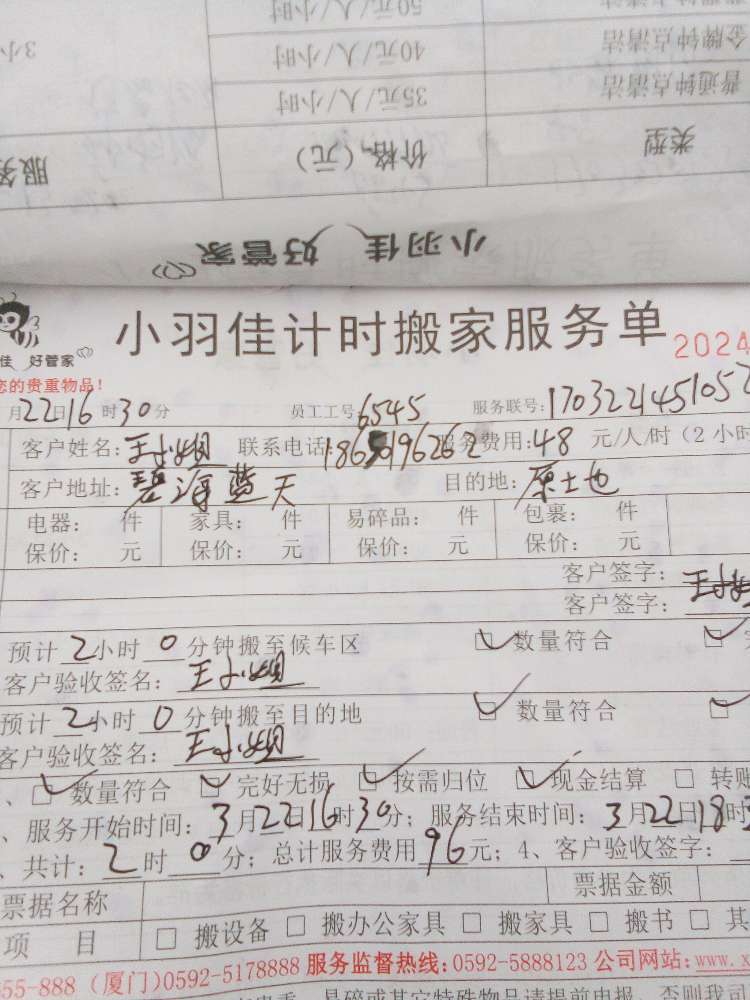 50元/人/小时
金牌钟点清洁 40元/人/小时 3小
普通钟点清洁 35元/人/小时
类型 价格(元) 服务
小羽佳 好管家
小羽佳计时搬家服务单 2024
佳 好管家
您的贵重物品!
月22日16时30分 员工工号:6545 服务联号:170322145105
客户姓名:王小姐 联系电话: 服务费用:48 元/人/时(2小时
客户地址:碧海蓝天 目的地:原土也
电器: 件 家具: 件 易碎品: 件 包裹: 件
保价: 元 保价: 元 保价: 元 保价: 元
客户签字:王小姐
客户签字:
预计2小时0分钟搬至候车区 数量符合
客户验收签名:王小姐
预计2小时0分钟搬至目的地 数量符合
客户验收签名:王小姐
、数量符合 完好无损 按需归位 现金结算 转账
、服务开始时间:3月22日16时30分;服务结束时间:3月22日18时
、共计:2时0分;总计服务费用96元;4、客户验收签字:
票据名称 票据金额
项 目 搬设备 搬办公家具 搬家具 搬书 其
55-888(厦门)0592-5178888 服务监督热线:0592-5888123 公司网站:www.x
易碎或其它特殊物品请提前申报,否则我司